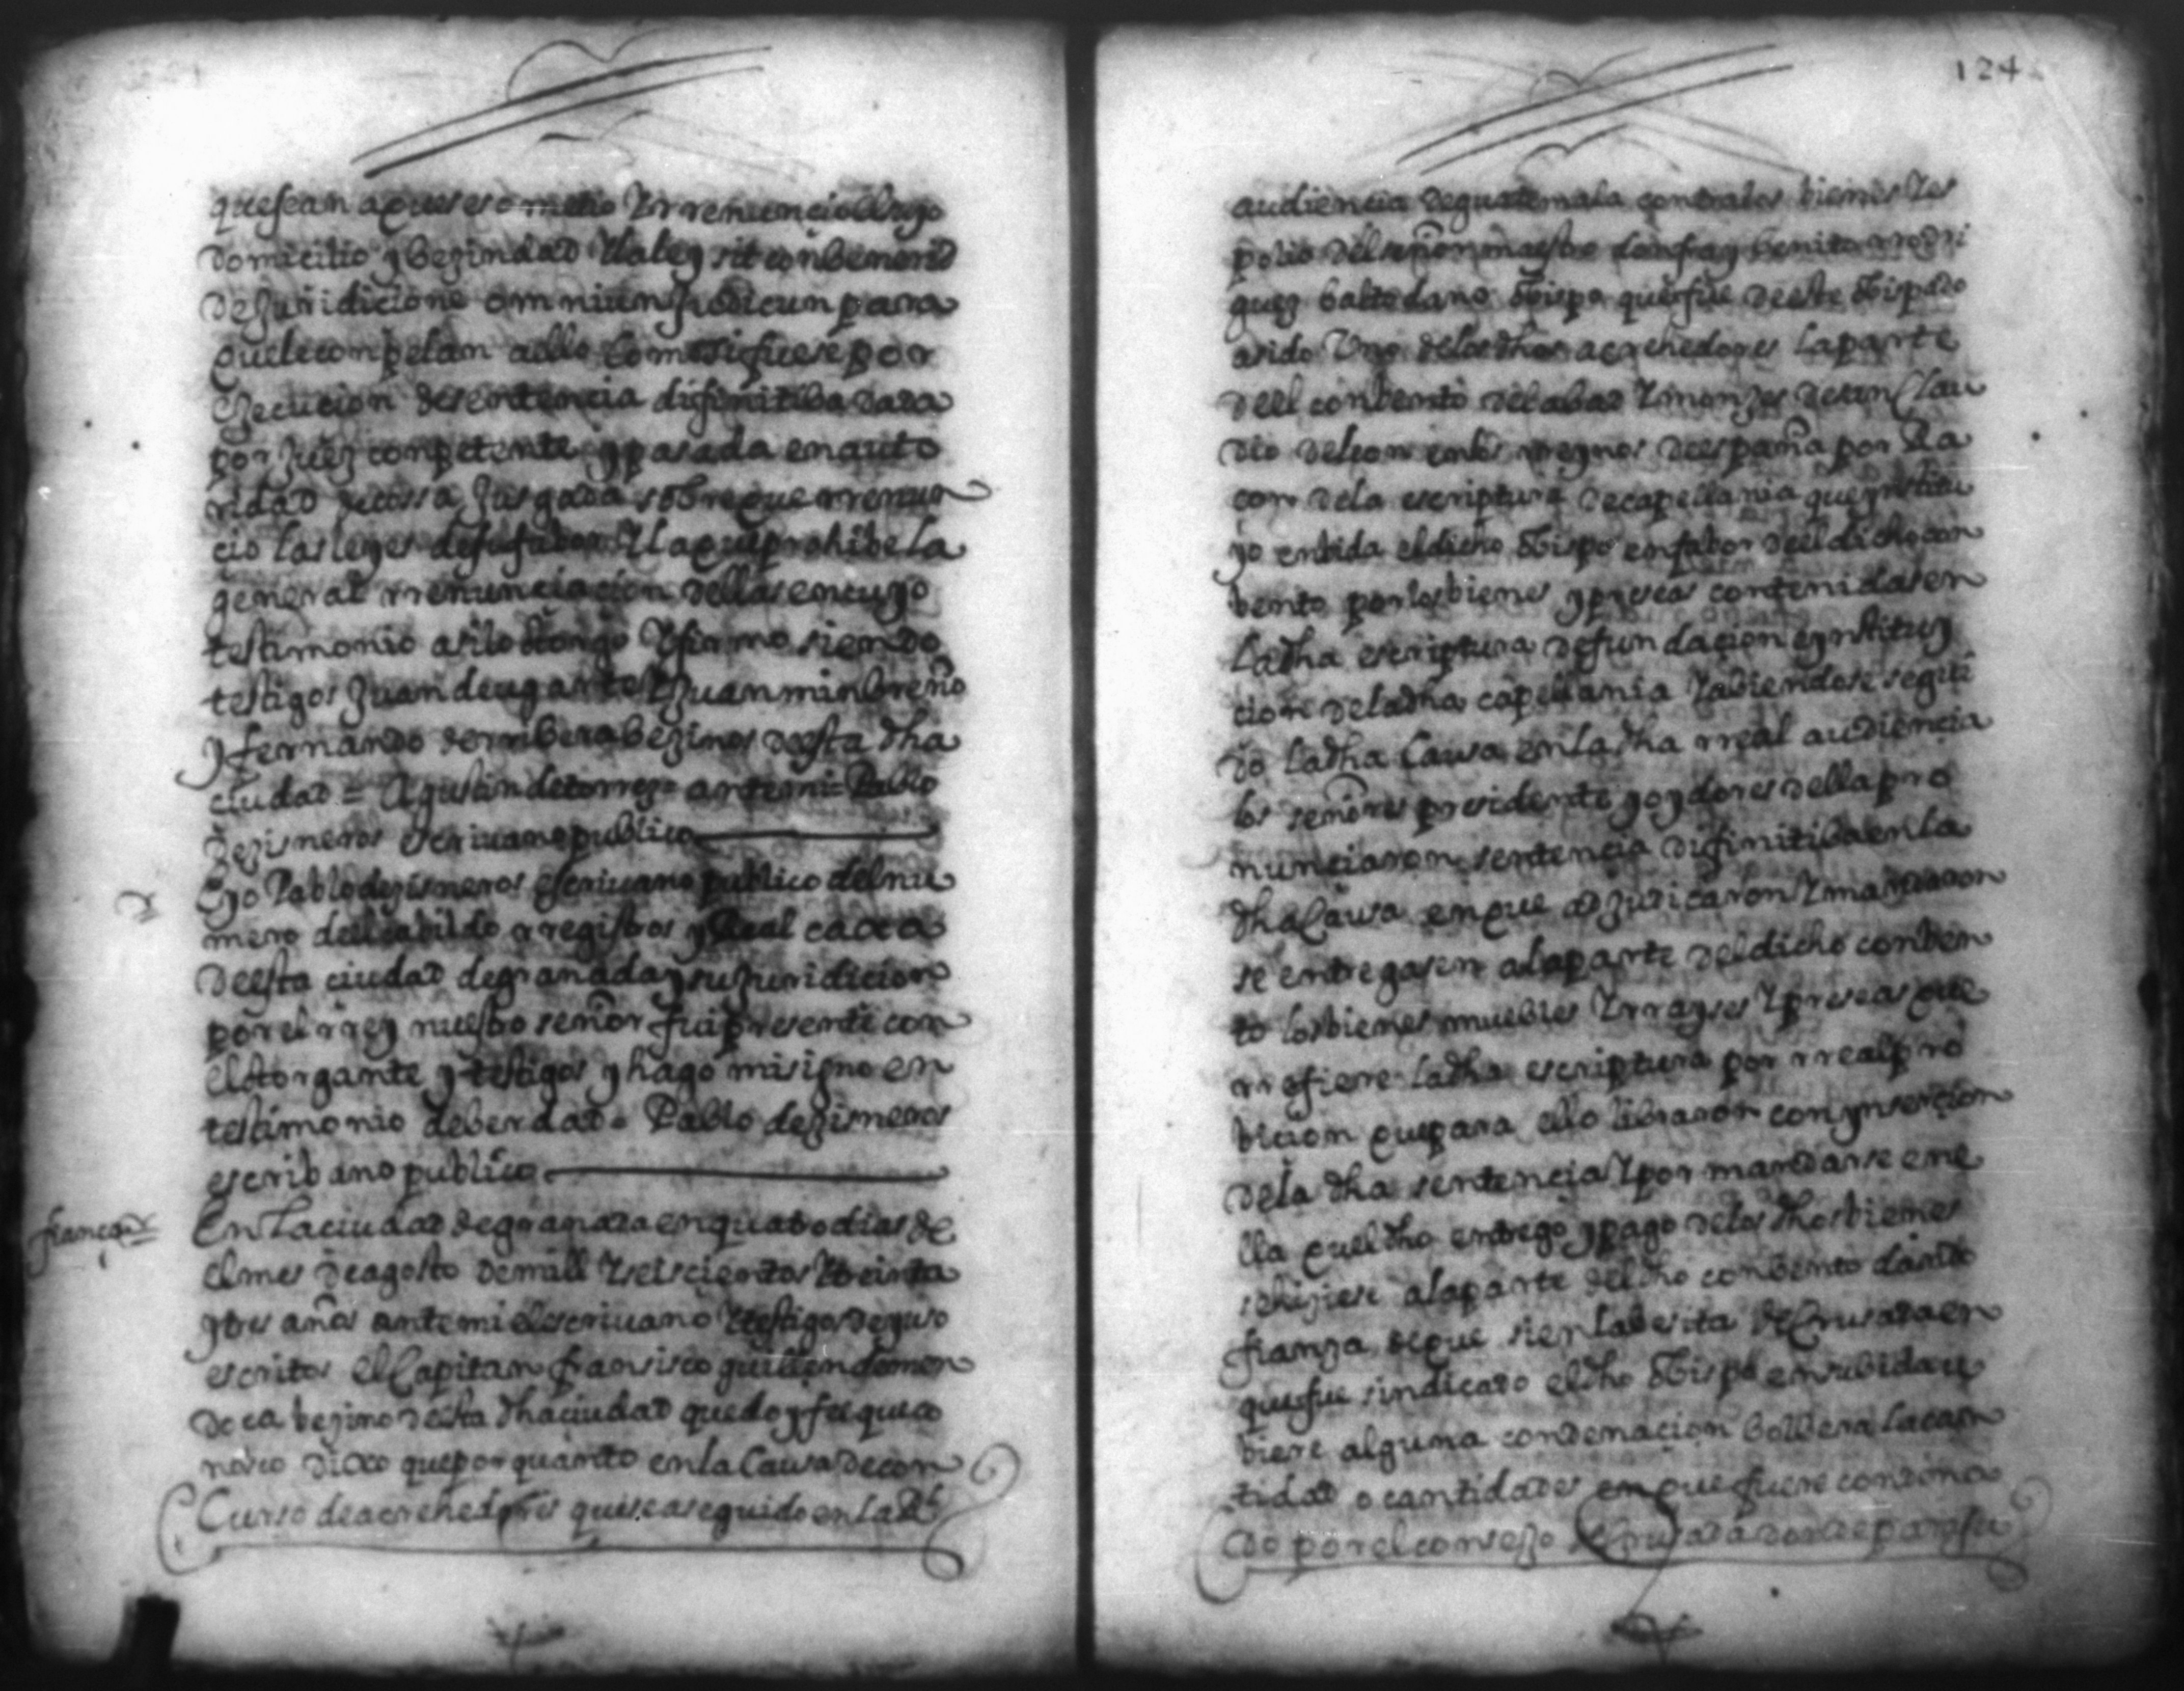 que sean a que se sometio Y rrenuncio el suyo
domicilio y bezindad Y la ley sit conbenerid
de juridicione omniun judicun para
que le conpelan a ello Como si fuese por
Execucion de sentencia difinitiba dada
por juez conpetente y pasada en auto
ridad de cossa juzgada sobre que rrenun
cio las leyes de su fabor Y la que prohibe la
general rrenunciacion dellas en cuyo
testimonio asi lo otorgo Y firmo siendo
testigos Juan deugarte Y Juan minbreño
y fernando de rribera bezinos de esta dha
ciudad = Agustin de torrez = ante mi = Pablo
dezisneros escriuano publico
E yo Pablo dezisneros escriuano publico del nu
mero del cabildo rregistros y Real caxa
de esta ciudad de granada y su juridicion
por el rrey nuestro señor fui presente con
el otorgante y testigos y hago mi signo en
testimonio de berdad = Pablo dezisneros
escribano publico
fiança
En La ciudad de granada en quatro dias de
el mes de agosto de mill Y seiscientos Y treinta
y tres años ante mi el escriuano Y testigos de yuso
escritos el Capitan fransisco guillen de mon
doca bezino de esta dha ciudad que doy fee que co
nosco dixo que por quanto en la Causa de con
Curso de acrehedores que se a seguido en la Rl
124
audiencia de guatemala contra los bienes Y es
polio del señor maestro don fray benito rrodri
guez baltodano obispo que fue de este obispado
a sido Uno de los dhos acrehedores la parte
de el conbento del abad Y monjes de san Clau
dio de leon en los rreynos de españa por Ra
con de la escriptura de capellania que ynstitu
yo en bida el dicho obispo en fabor de el dicho con
bento por los bienes y preseas contenidas en
La dha escriptura de fundacion e ynstituy
cion de la dha capellania Y abiendose segui
do La dha Causa en la dha rreal audiencia
los señores presidente y oydores della pro
nunciaron sentencia difinitiba en la
dha Causa en que adjudicaron Y mandaron
se entregasen a la parte del dicho conben
to los bienes muebles Y rrayses Y preseas que
rrefiere la dha escriptura por rreal pro
bicion que para ello libraron con ynsercion
de la dha sentencia Y por mandarse en e
lla que el dho entrego y pago de los dhos bienes
se hiziese a la parte del dho conbento dando
fianza de que si en la besita de Crusada en
que fue sindicado el dho obispo en su bida u
biere alguna condenacion bolbera la can
tidad o cantidades en que fuere condena
do por el consejo de Crusada donde para su